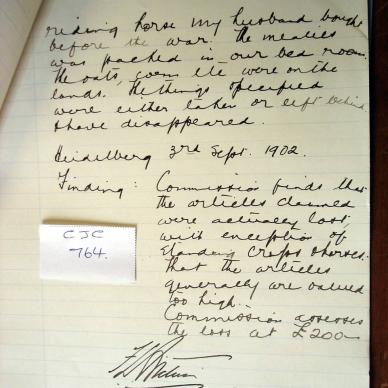 riding horse my husband bought
before the war. The mealies
was packed in our bed room
The oats, corn etc were on the
lands. The things specified
were either taken or left behind
& have disappeared.
Heidelberg 3rd Sept. 1902.
Finding: Commission finds that
the articles claimed
were actually lost,
with exception of
standing crops & horses.
that the articles
generally are valued
too high.
Commission assesses
the loss at £200
CJC
764.